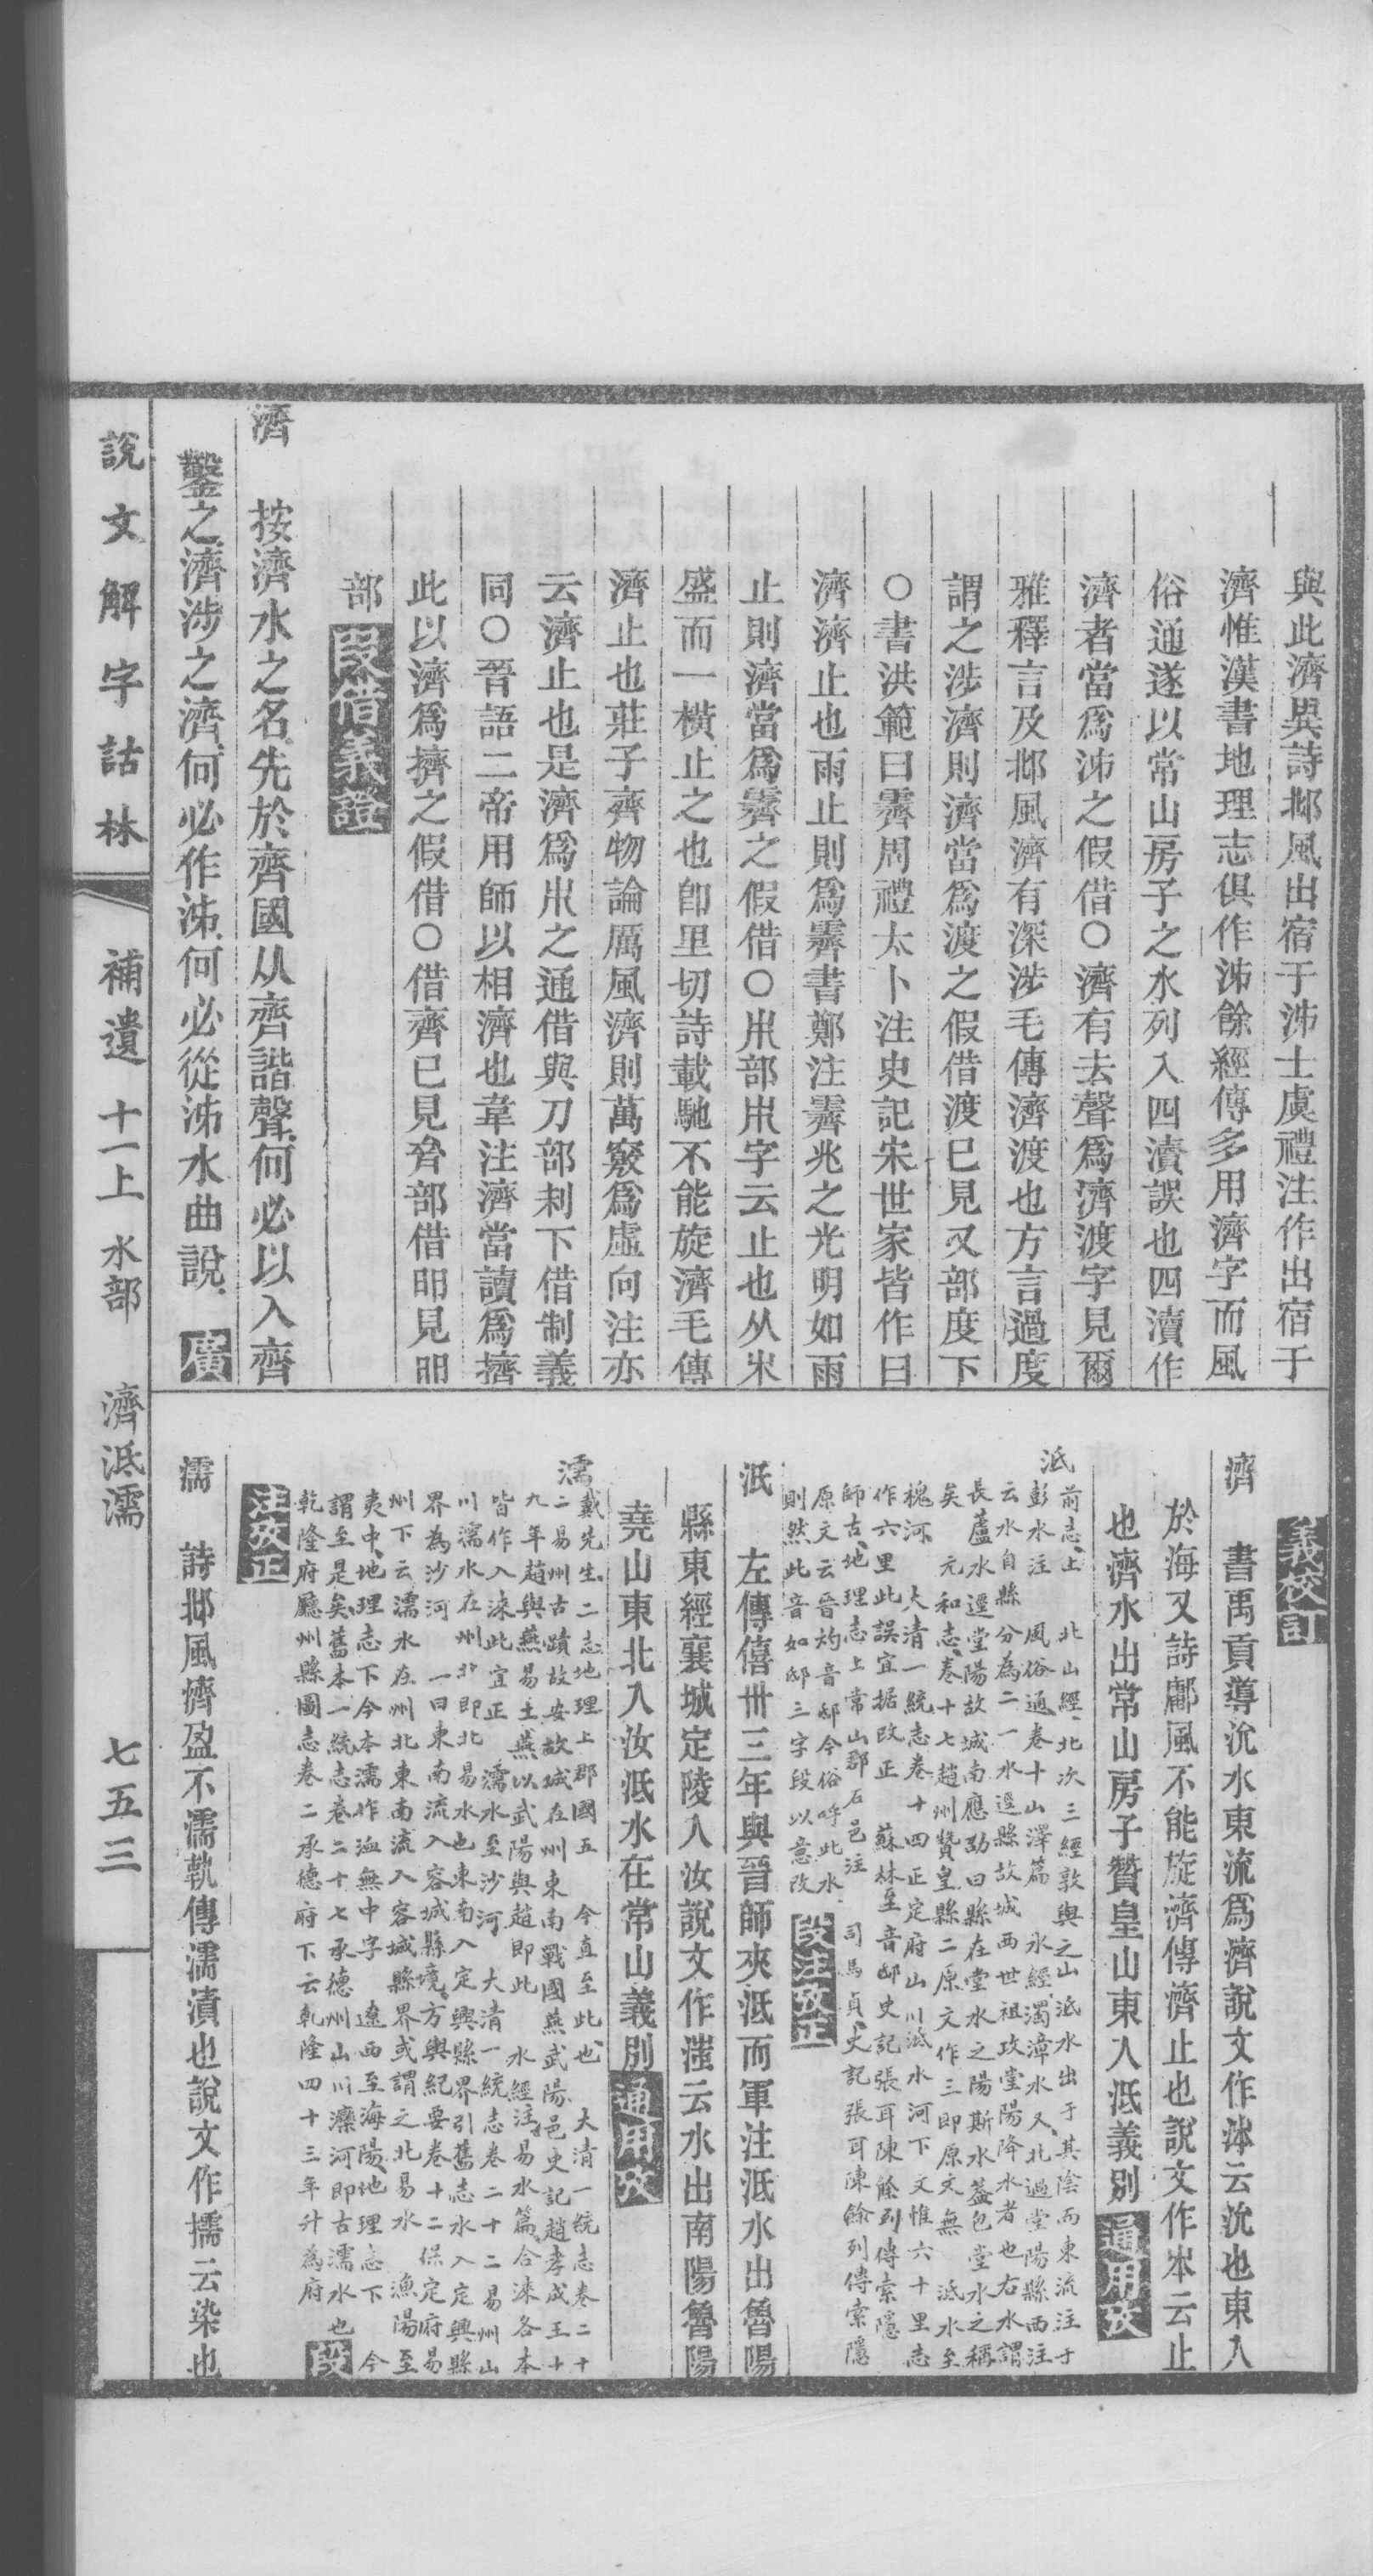 與此濟異詩邶風出宿于泲士虞禮注作出宿于
濟惟漢書地理志俱作泲餘經傳多用濟字而風
俗通遂以常山房子之水列入四瀆誤也四瀆作
濟者當爲泲之假借○濟有去聲爲濟渡字見爾
雅釋言及邶風濟有深涉毛傳濟渡也方言過度
謂之涉濟則濟當爲渡之假借渡已見又部度下
○書洪範曰霽周禮太卜注史記宋世家皆作曰
濟濟止也雨止則爲霽書鄭注霽兆之光明如雨
止則濟當爲霽之假借○𣎵部𣎵字云止也从𣎵
盛而一橫止之也卽里切詩載馳不能旋濟毛傳
濟止也莊子齊物論厲風濟則萬竅爲虛向注亦
云濟止也是濟爲𣎵之通借與刀部制下借制義
同○晉語二帝用師以相濟也韋注濟當讀爲擠
此以濟爲擠之假借○借齊已見齊部借朙見朙
部 叚借義證
濟 按濟水之名先於齊國从齊諧聲何必以入齊
鑿之濟涉之濟何必作泲何必從泲水曲說 廣
義校訂
濟 書禹貢導沇水東流爲濟說文作泲云沇也東入
於海又詩鄘風不能旋濟傳濟止也說文作𣎵云止
也濟水出常山房子贊皇山東入泜義別 通用攷
泜 前志上 北山經北次三經敦與之山泜水出于其陰而東流注于
彭水注 風俗通卷十山澤篇 水經濁漳水又北過堂陽縣西注
云水自縣分為二一水逕縣故城西世祖攻堂陽降水者也右水謂
長蘆水逕堂陽故城南應劭曰縣在堂水之陽斯水蓋包堂水之稱
矣 元和志卷十七趙州贊皇縣二原文作三即原文無 泜水至
槐河 大清一統志卷十四正定府山川泜水河下文惟六十里志
作六里此誤宜据改正 蘇林至音邸史記張耳陳餘列傳索隱
師古地理志上常山郡石邑注 司馬貞史記張耳陳餘列傳索隱
原文云晉灼音邸今俗呼此水
則然此音如邸三字段以意改 段注攷正
泜 左傳僖卅三年與晉師夾泜而軍注泜水出魯陽
縣東經襄城定陵入汝說文作滍云水出南陽魯陽
堯山東北入汝泜水在常山義別 通用攷
濡 戴先生二志地理上郡國五 今直至此也 大清一統志卷二十
二易州古蹟故安故城在州東南戰國燕武陽邑史記趙孝成王十
九年趙與燕易土燕以武陽與趙即此 水經注易水篇合淶各本
皆作入淶此宜正 濡水至沙河 大清一統志卷二十二易州山
川濡水在州北即北易水也東南入定興縣界引舊志水入定興縣
界為沙河 一曰東南流入容城縣境方輿紀要卷十二保定府易
州下云濡水在州北東南流入容城縣界或謂之北易水 漁陽至
夷中地理志下今本濡作洫無中字 遼西至海陽地理志下 今
謂至是矣舊本一統志卷二十七承德州山川灤河即古濡水也
乾隆府廳州縣圖志卷二承德府下云乾隆四十三年升為府 段
注攷正
濡 詩邶風濟盈不濡軌傳濡漬也說文作擩云染也
說文解字詁林 補遺 十一上 水部 濟泜濡 七五三